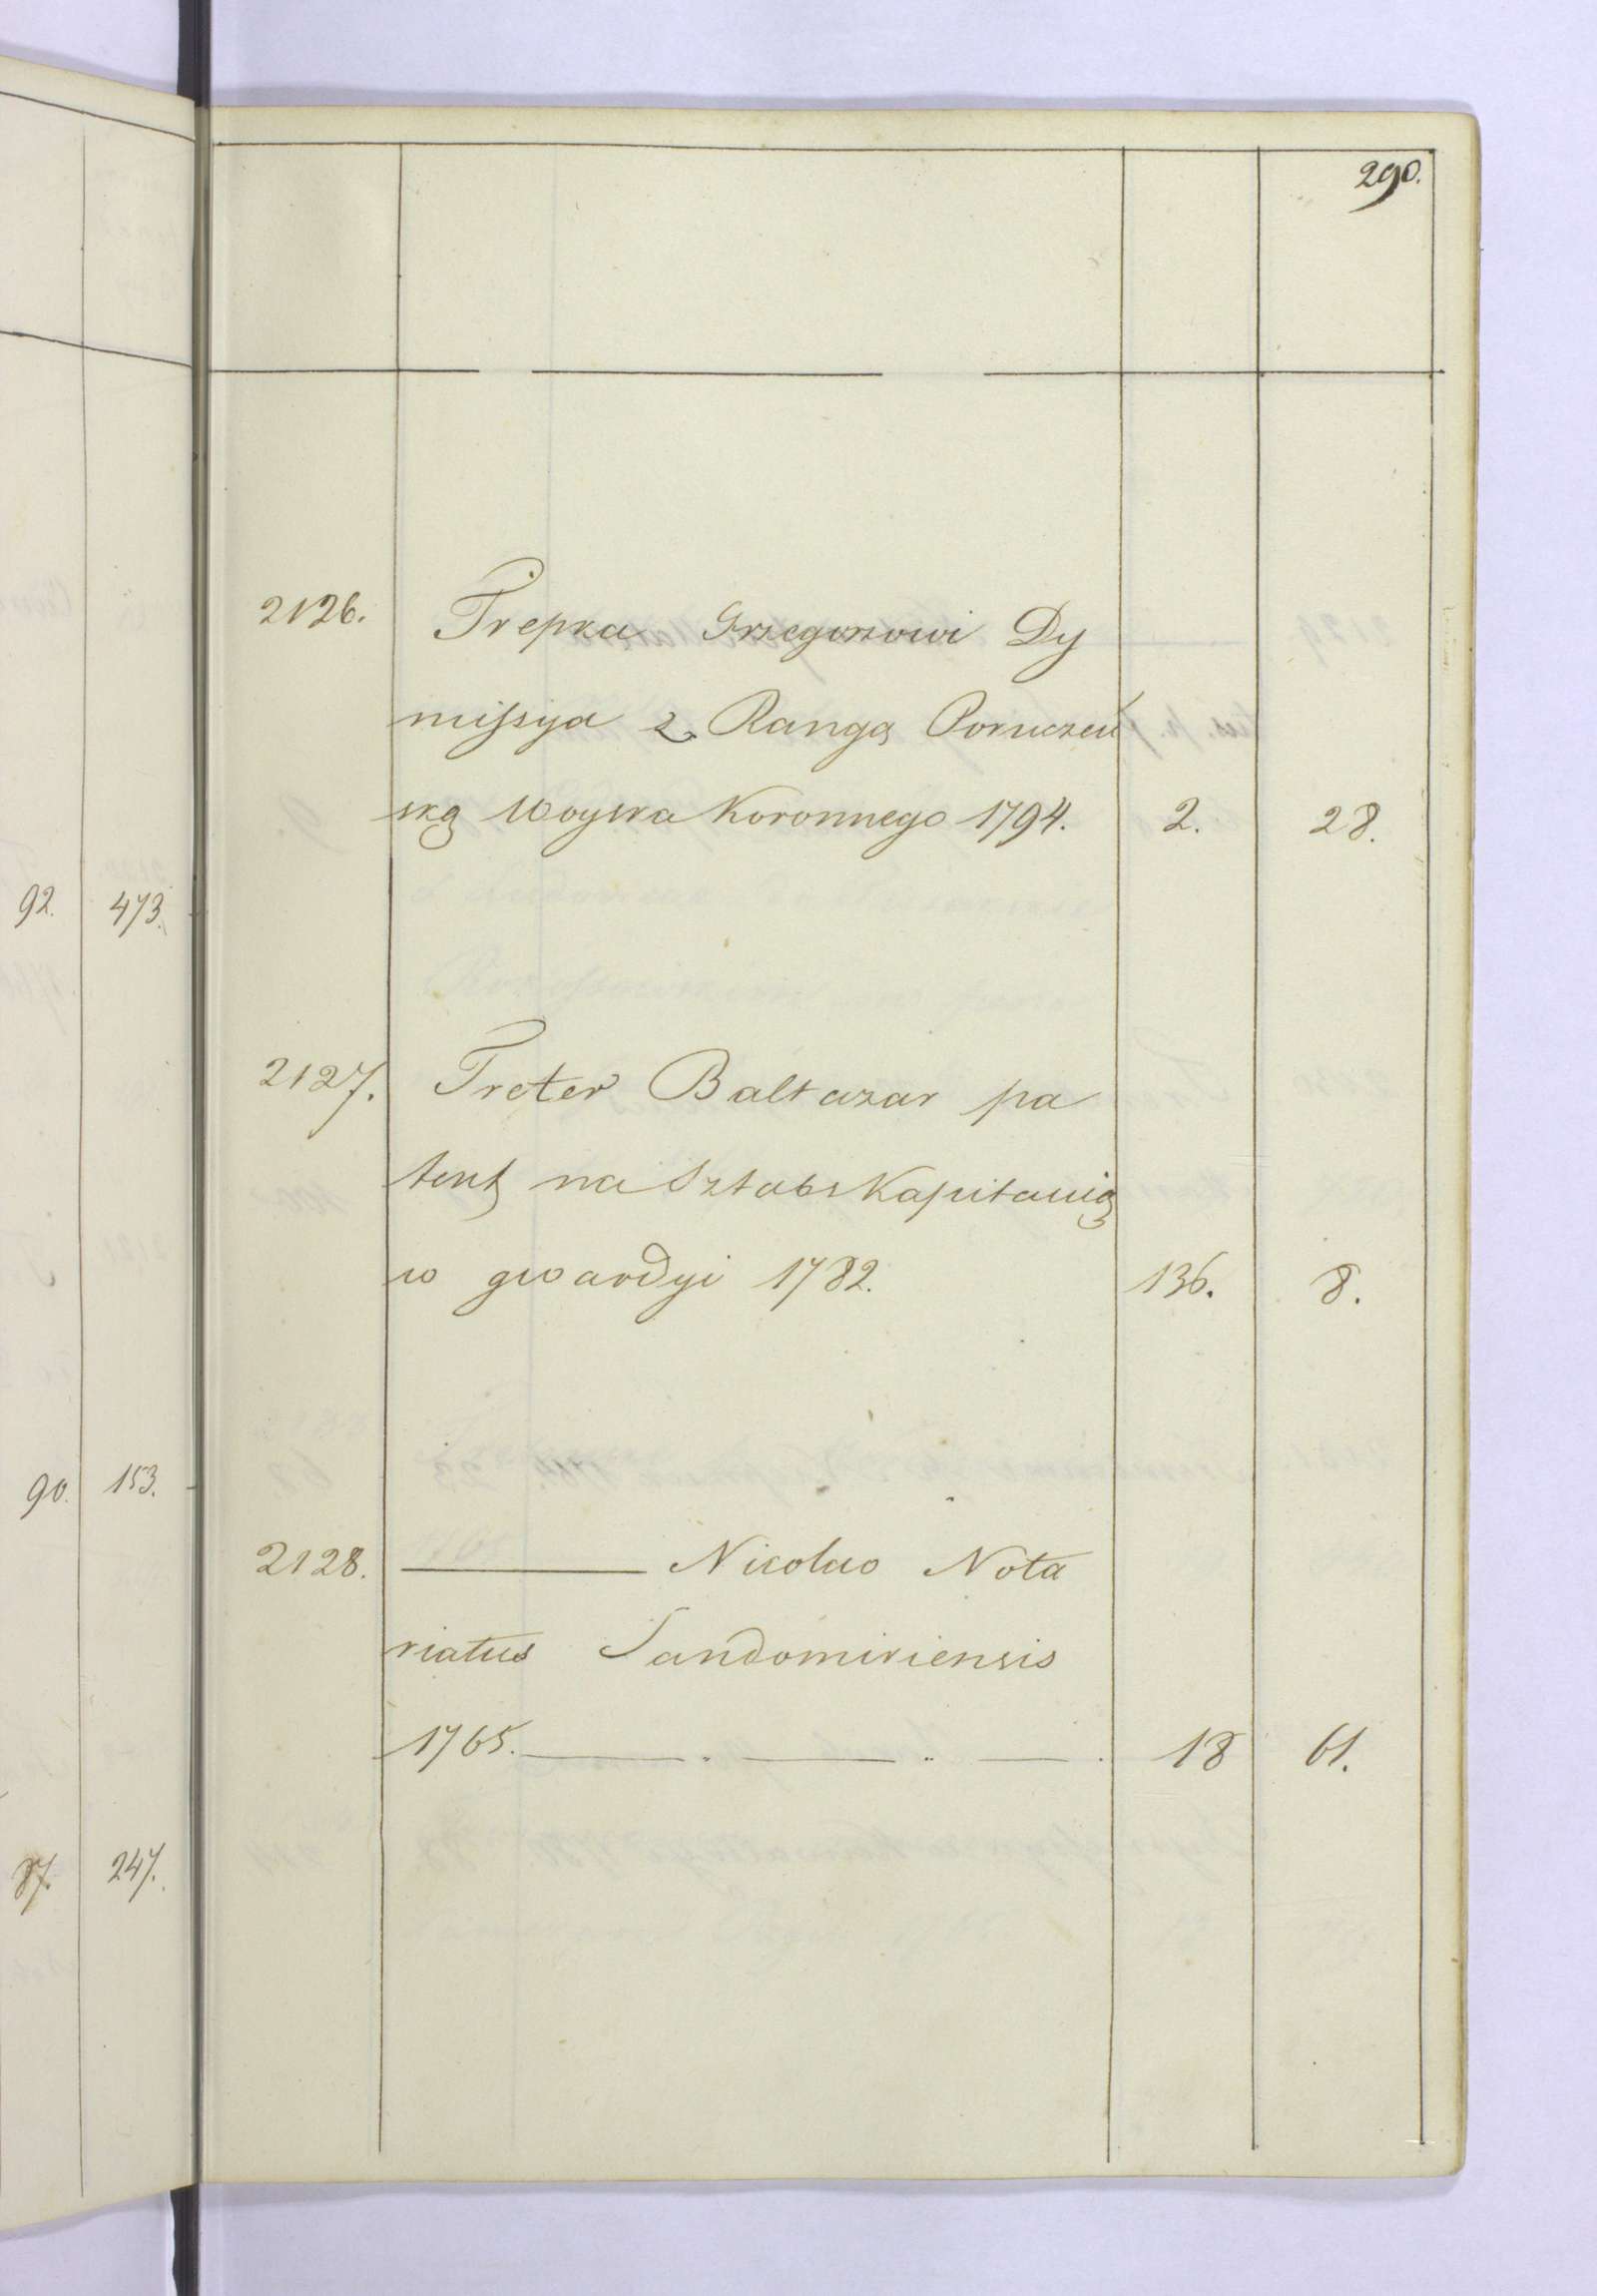 290.
2126. Trepka Grzegorzowi Dy
missya z Rangą Poruczeń
ską Woyska Koronnego 1794. 2. 28.
92. 473.
2127. Treter Baltazar pa
tent na Sztabs Kapitanią
w gwardyi 1782. 136. 8.
90. 153.
2128. ——— Nicolao Nota
riatus Sandomiriensis
1765. — . — .. — . 18 61.
87. 247.